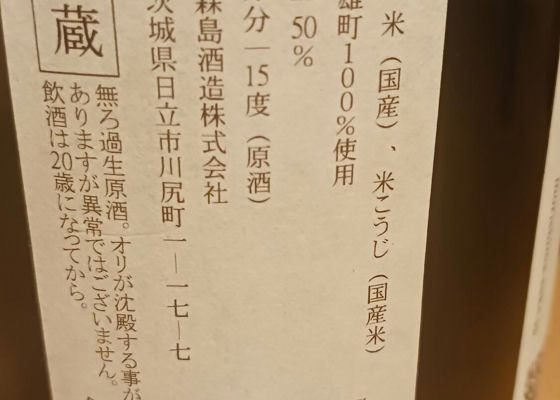 米（国産）、米こうじ（国産米）
雄町100％使用
50％
分 15度（原酒）
森島酒造株式会社
茨城県日立市川尻町一―一七―七
無ろ過生原酒。オリが沈殿する事が
ありますが異常ではございません。
飲酒は20歳になってから。
蔵